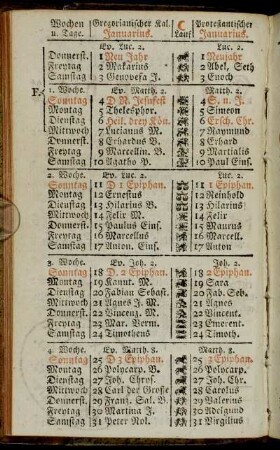 Wochen Gregorianischer Kal. C Protestantischer
u. Tage. Januarius. Lauf Januarius.
Ev. Luc. 2. Luc. 2.
Donnerst. 1 Neu Jahr 1 Neujahr
Freytag 2 Makarius 2 Abel, Seth
Samstag 3 Genovefa J. 3 Enoch
1. Woche. Ev. Matth. 2. Matth. 2.
F. Sonntag 4 D N. Jesufest 4 S. n. J.
Montag 5 Thelesphor. 5 Simeon
Dienstag 6 Heil. drey Kön. 6 Ersch. Chr.
Mittwoch 7 Lucianus M. 7 Raymund
Donnerst. 8 Erhardus B. 8 Erhard
Freytag 9 Marcellin. B. 9 Martialis
Samstag 10 Agatho P. 10 Paul Eins.
2. Woche. Ev. Luc. 2. Luc. 2.
Sonntag 11 D 1 Epiphan. 11 1 Epiphan.
Montag 12 Ernestus 12 Reinhold
Dienstag 13 Hilarius B. 13 Hilarius
Mittwoch 14 Felix M. 14 Felix
Donnerst. 15 Paulus Eins. 15 Maurus
Freytag 16 Marcellus 16 Marcell.
Samstag 17 Anton. Eins. 17 Anton
3. Woche. Ev. Joh. 2. Joh. 2.
Sonntag 18 D. 2 Epiphan. 18 2 Epiphan.
Montag 19 Kanut. M. 19 Sara
Dienstag 20 Fabian Sebast. 20 Fab. Seb.
Mittwoch 21 Agnes J. M. 21 Agnes
Donnerst. 22 Vincenz. M. 22 Vincent.
Freytag 23 Mar. Verm. 23 Emerent.
Samstag 24 Timotheus 24 Timoth.
4. Woche. Ev. Matth. 8. Matth. 8.
Sonntag 25 D 3 Epiphan. 25 3 Epiphan.
Montag 26 Polycarp. B. 26 Polycarp.
Dienstag 27 Joh. Chrys. 27 Joh. Chr.
Mittwoch 28 Carl der Große 28 Carolus
Donnerst. 29 Franz. Sal. B. 29 Valerius
Freytag 30 Martina J. 30 Adelgund
Samstag 31 Peter Nol. 31 Virgilius